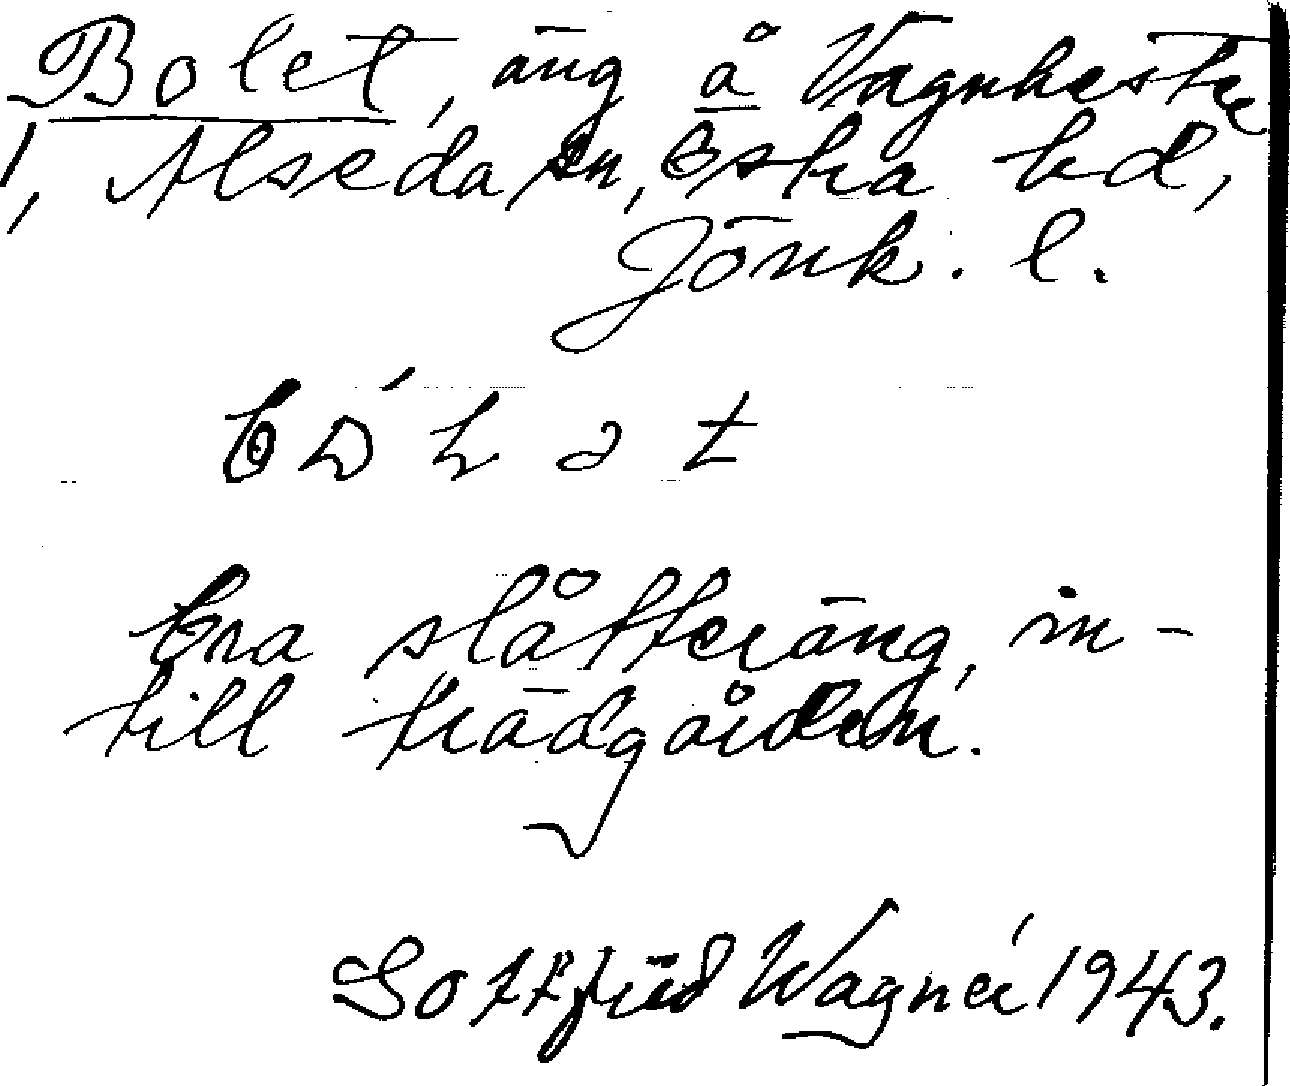 Bolet, äng å Vagnhester
1, Alseda sn, Östra hd,
Jönk. l.
bra slåtteräng, in-
till trädgården.
Gottfrid Wagnér 1943.